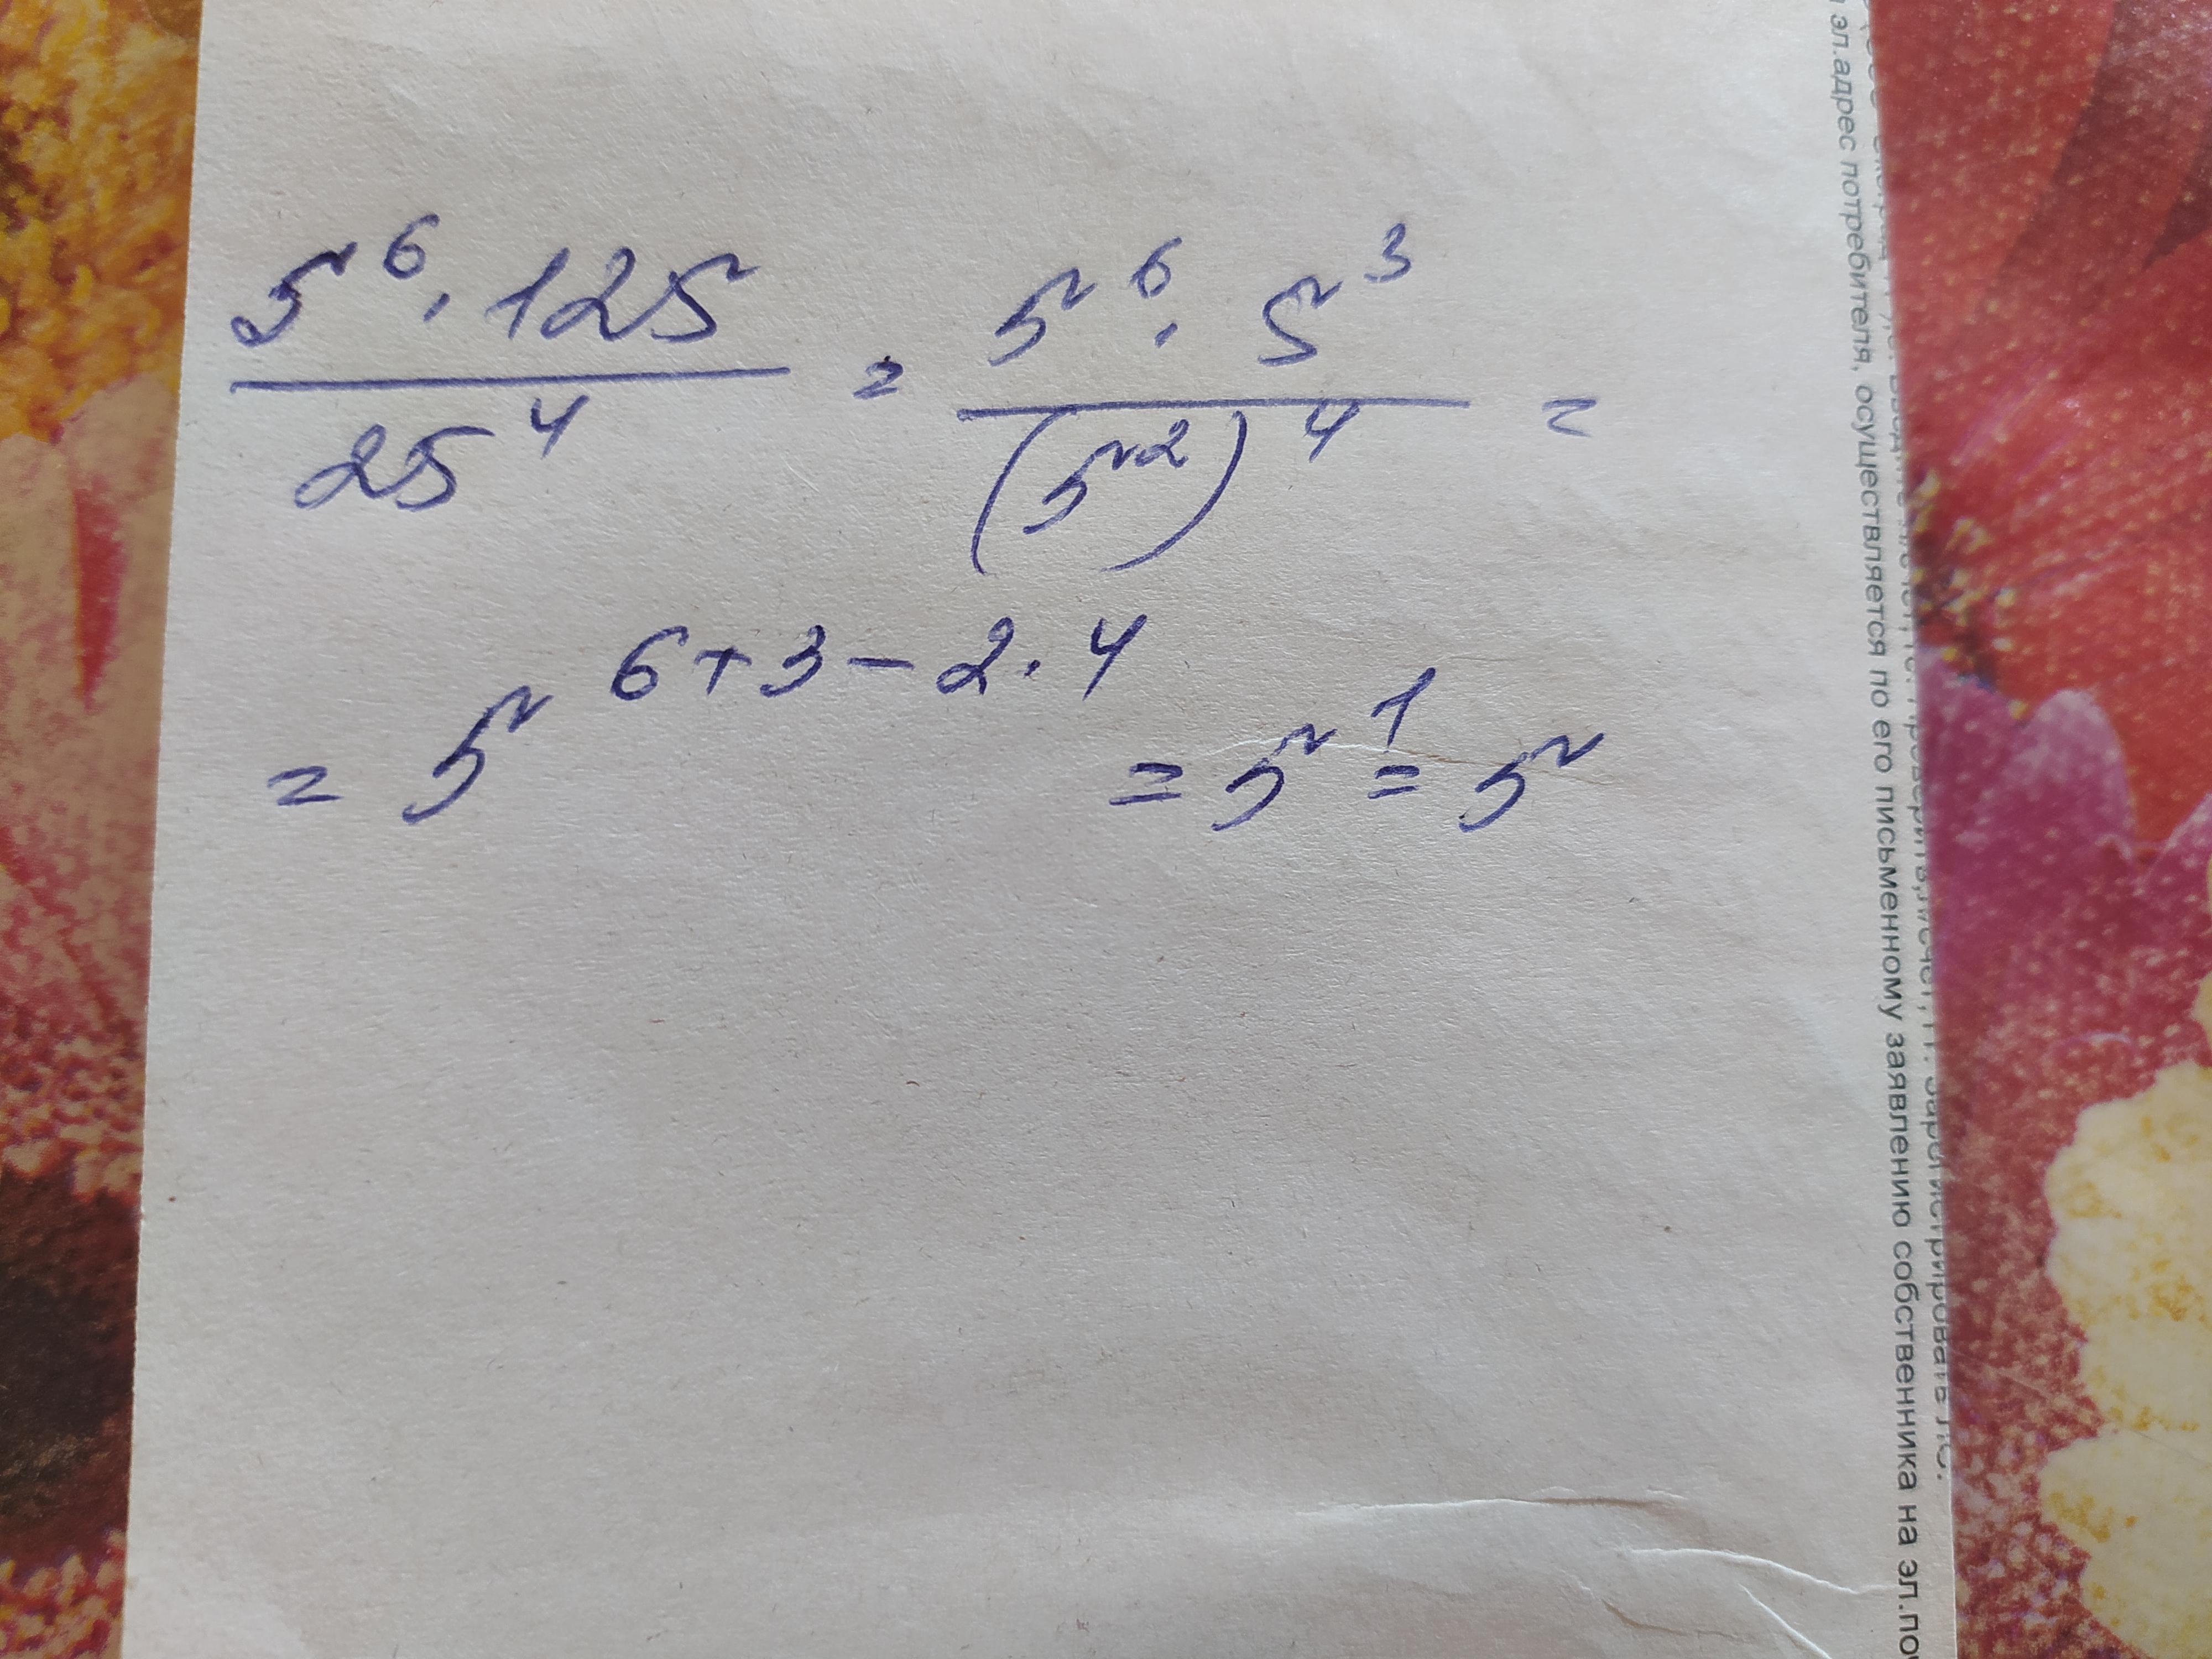 5⁶ · 125 / 25⁴ = 5⁶ · 5³ / (5²)⁴ =
= 5⁶⁺³⁻²·⁴ = 5¹ = 5
эл.адрес потребителя, осуществляется по его письменному заявлению собственника на эл.поч